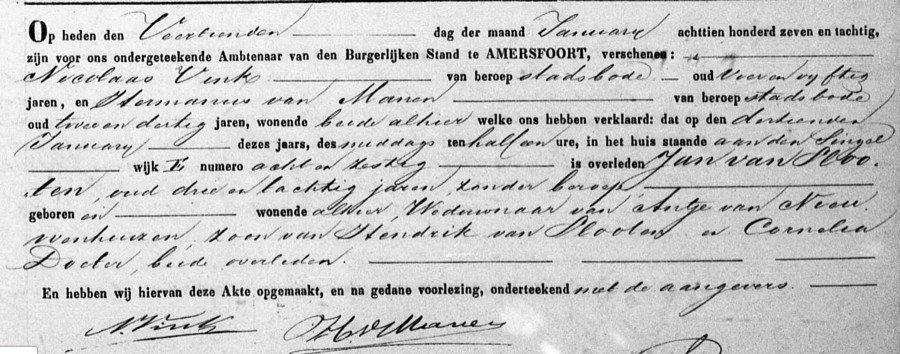 Op heden den Veertienden dag der maand January achttien honderd zeven en tachtig,
zijn voor ons ondergeteekende Ambtenaar van den Burgerlijken Stand te AMERSFOORT, verschenen:
Nicolaas Vink van beroep stadsbode oud vier en vyftig
jaren, en Hermanus van Manen van beroep stadsbode
oud twee en dertig jaren, wonende beide alhier welke ons hebben verklaard: dat op den dertienden
January dezes jaars, des middags ten half een ure, in het huis staande aan den Singel
wijk E numero acht en zestig is overleden Jan van Sloo-
ten, oud drie en tachtig jaren, zonder beroep
geboren en wonende alhier, Weduwnaar van Antje van Nieu-
wenhuizen, zoon van Hendrik van Slooten en Cornelia
Docter, beide overleden.
En hebben wij hiervan deze Akte opgemaakt, en na gedane voorlezing, onderteekend met de aangevers.
N. Vink H v Manen